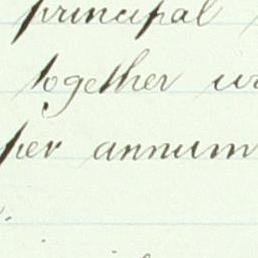 principal
together
per annum